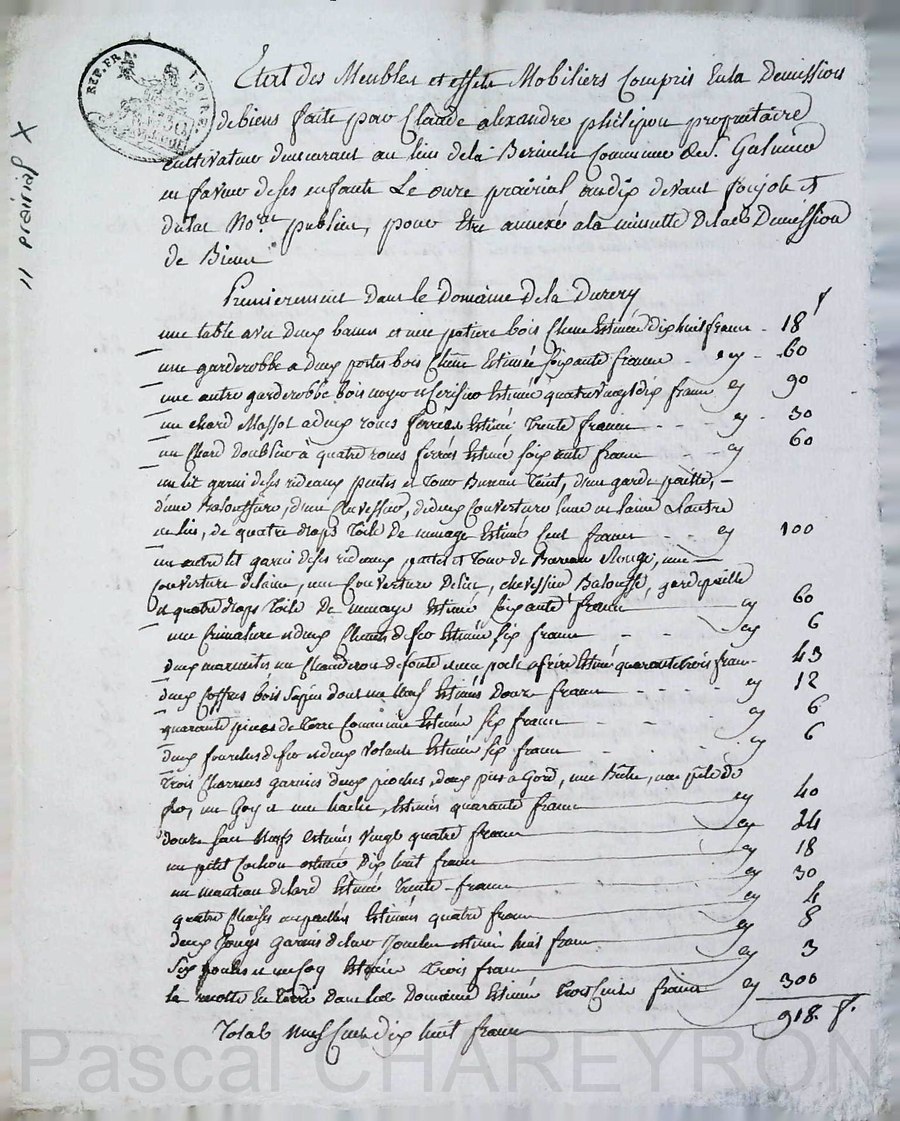 REP. FRA. LOIRE
11 prairial X
Etat des Meubles et effets Mobiliers Compris En la Demission
de biens faite par Claude alexandre philipon propriétaire
cultivateur demeurant au lieu de la Commune de St. Galmier
en faveur de ses enfants Le onze prairial an dix devant et
dulac No.res publics, pour Etre annexé a la minute De lad. Demission
de Biens
Premierement Dans le Domaine De la Durery
une table avec Deux bancs et une patiere bois Chene Estimée Dix huit francs - 18 f
une garderobbe a Deux portes bois Chêne Estimée soixante francs - cy - 60
une autre garderobbe bois noyer et Cerisier Estimée quatrevingt dix francs cy 90
un chard Massot a deux roues ferrées Estimé Trente francs - cy - 30
un Chard Doublier à quatre roues ferrées Estimé soixante francs - cy 60
un lit garni de ses rideaux pentes et Tour Bureau Teint, d'une garde paille, -
d'une Balouffiere, d'une Chevessier, de deux Couverture l'une en laine L'autre
en lin, de quatre draps Toile De menage Estimé Cent francs - cy 100
un autre lit garni de ses rideaux pentes et Tour de Bureau Rouge, une
couverture de laine, une Couverture De lin, chevessier Balouffe, garde paille
et quatre draps Toile De menage Estimé soixante francs cy 60
une Crimalere et deux Chenets de fer Estimée six francs - cy 6
deux marmites un Chauderon de fonte et une poele a frire Estimé quarante trois francs 43
deux Coffres bois Sapin dont un neuf Estimés Douze francs cy 12
quarante pieces de Terre Commune Estimée six francs - cy 6
deux fourches de fer et deux volants Estimés six francs cy 6
Trois Charrues garnies deux pioches, deux pics a Gord, une Bêche, une pèle de
fer, un Goy et une hache, Estimés quarante francs cy 40
douze sacs neufs estimés vingt quatre francs cy 24
un petit Cochon estimé Dix huit francs cy 18
un manteau de lard Estimé Trente francs cy 30
quatre Chaises empaillées Estimées quatre francs 4
deux Jougs garnis de leur Joucles estimés huit francs cy 8
Six poules et un Coq Estimés Trois francs cy 3
La recolte En Terre Dans led. Domaine Estimée Trois Cents francs cy 300
Total neuf Cent dix huit francs 918. f.
Pascal CHAREYRON